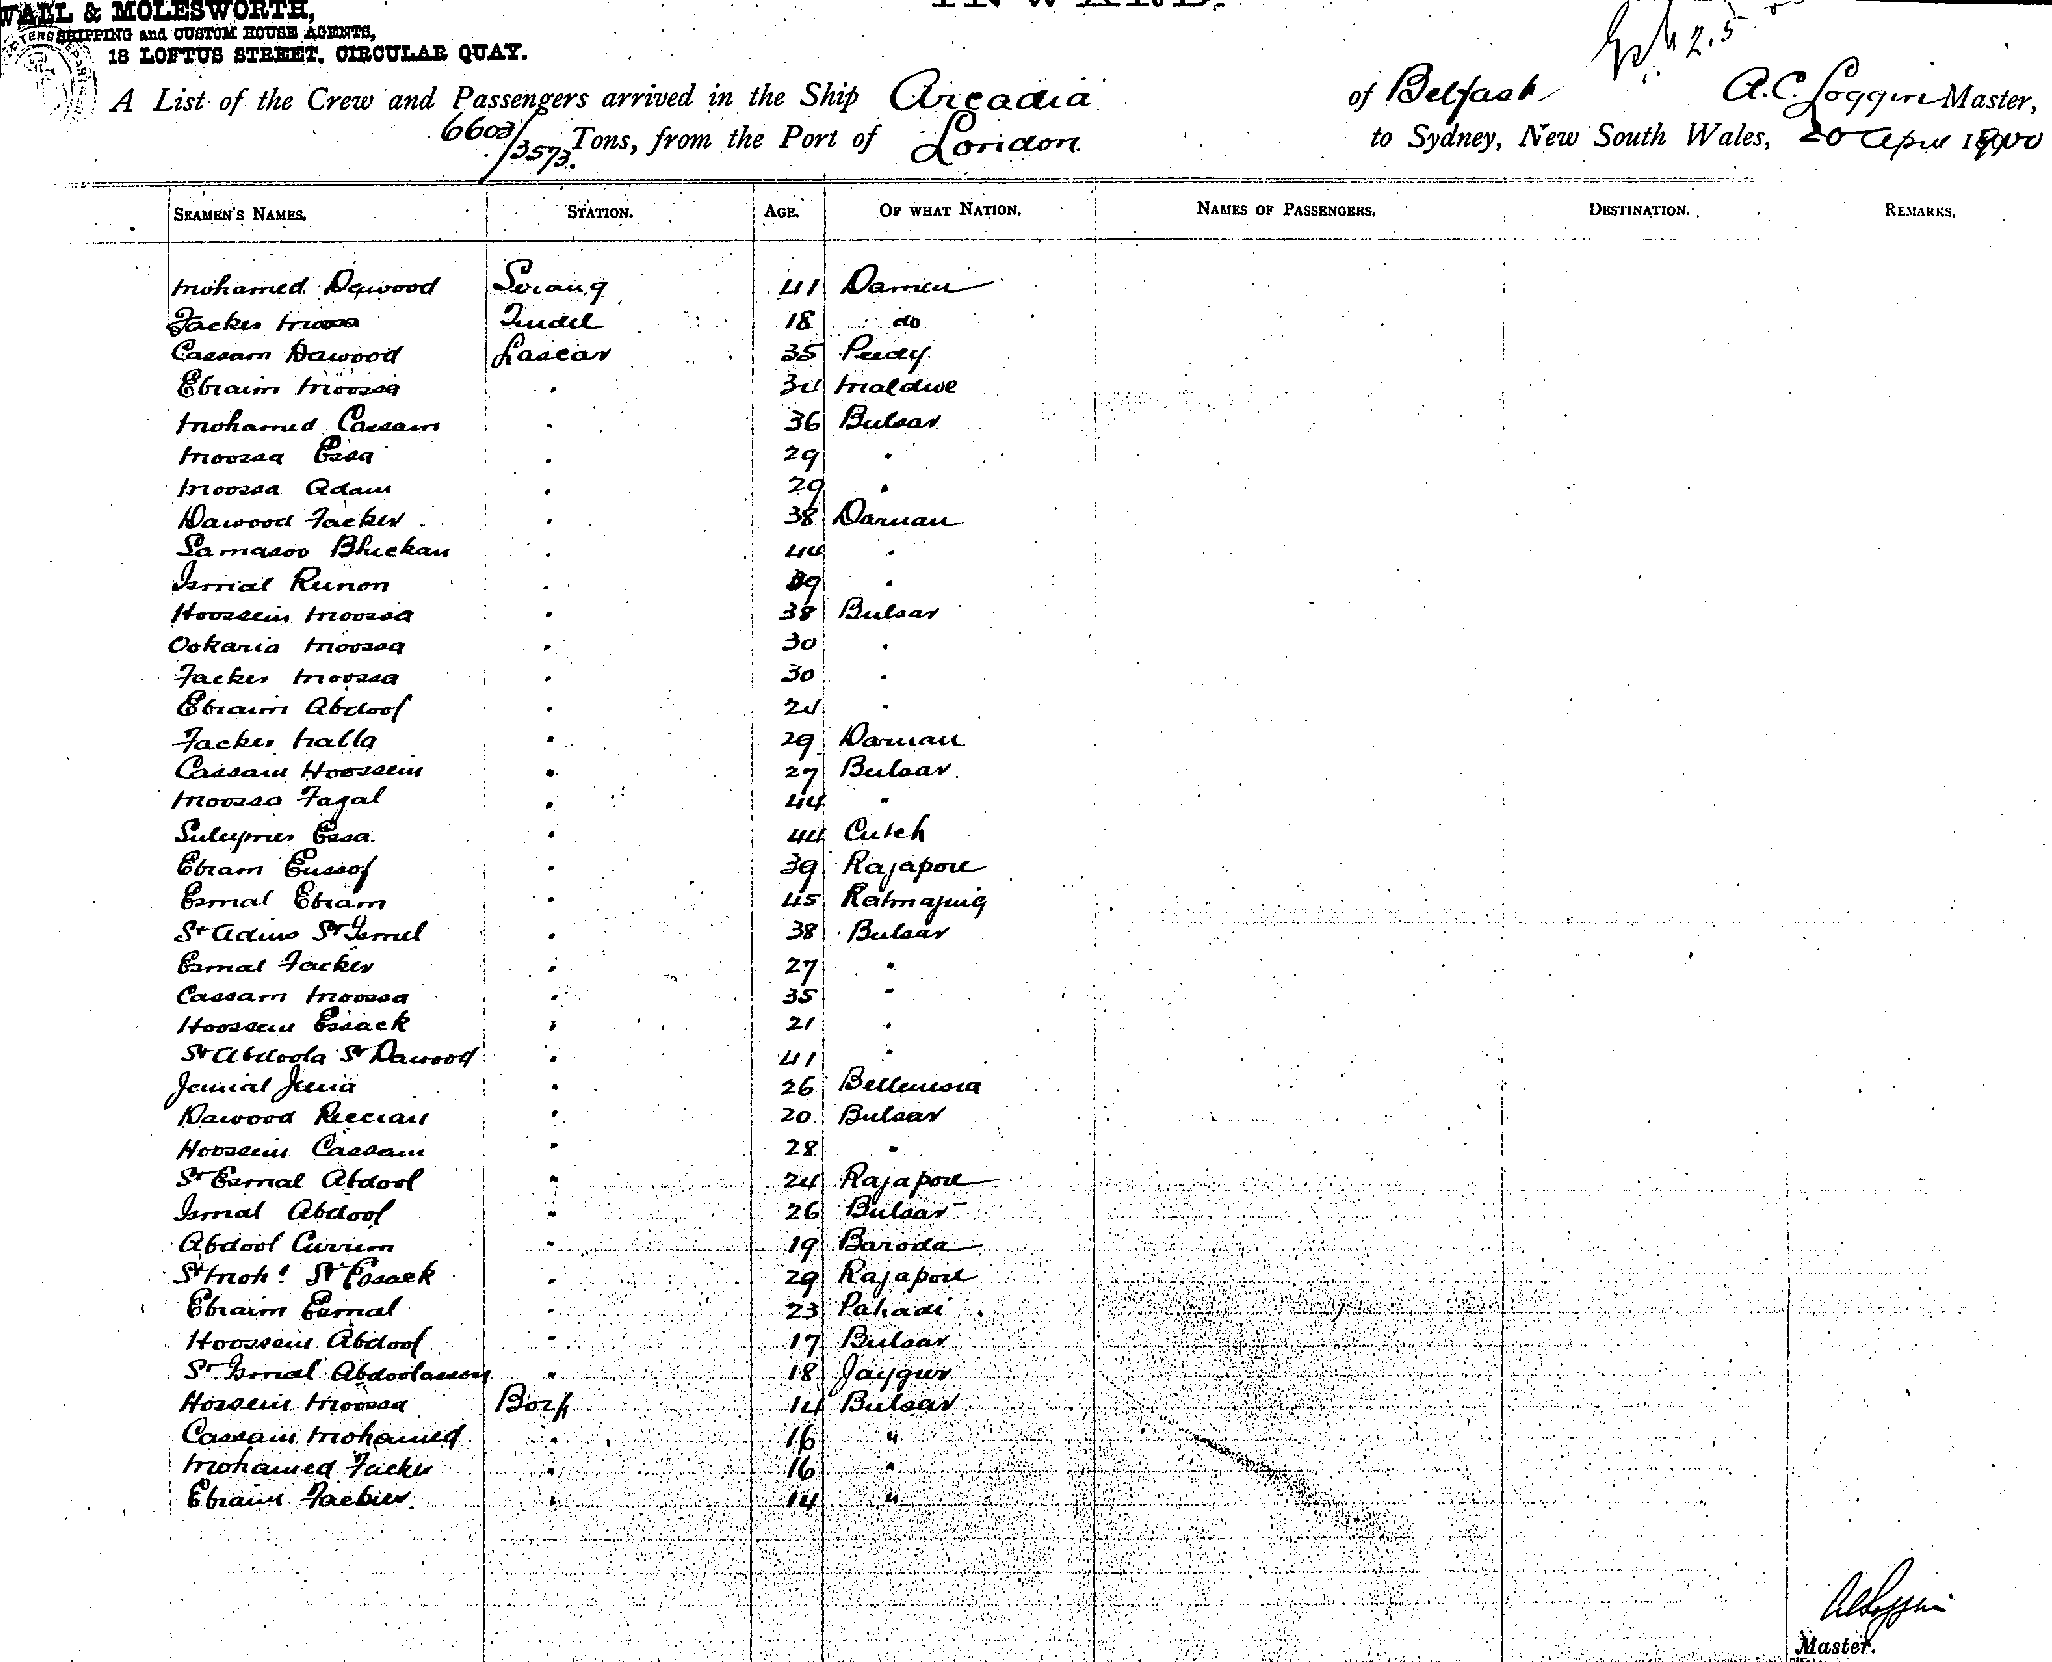 WALL & MOLESWORTH,
SHIPPING and CUSTOM HOUSE AGENTS,
18 LOFTUS STREET, CIRCULAR QUAY.
INWARD.
A List of the Crew and Passengers arrived in the Ship Arcadia of Belfast A.C. Loggin Master,
6603/3573 Tons, from the Port of London to Sydney, New South Wales, 20 April 1900
SEAMEN'S NAMES. STATION. AGE. OF WHAT NATION. NAMES OF PASSENGERS. DESTINATION. REMARKS.
Mohamed Dawood Serang 41 Daman
Facker Moosa Tindel 18 do
Cassam Dawood Lascar 35
Ebraim Moossa " 34 Maldive
Mohamed Cassam " 36 Bulsar
Moossa Essa " 29 "
Moossa Adam " 29 "
Dawood Facker " 38 Daman
Samasoo Bhickan " 44 "
Ismal Runon " 39 "
Hoossein Moossa " 38 Bulsar
Ookaria Moossa " 30 "
Facker Moossa " 30 "
Ebraim Abdool " 24 "
Facker Malla " 29 Daman
Cassam Hoossein " 27 Bulsar
Moossa Fazal " 44 "
Essa " 44 Cutch
Ebram Eussof " 39 Rajapore
Esmal Ebram " 45
Sr Adam Sr Ismal " 38 Bulsar
Esmal Facker " 27 "
Cassam Moossa " 35 "
Hoossein Essack " 21 "
Sr Abdoola Sr Dawood " 41 "
" 26
Dawood " 20 Bulsar
Hoossein Cassam " 28 "
Sr Esmal Abdool " 24 Rajapore
Ismal Abdool " 26 Bulsar
Abdool Currim " 19 Baroda
Sr Moh.d Sr Essack " 29 Rajapore
Ebraim Esmal " 23 Pahadi
Hoossein Abdool " 17 Bulsar
Sr Ismal " 18 Jaygur
Hossein Moossa Boy 14 Bulsar
Cassam Mohamed " 16 "
Mohamed Facker " 16 "
Ebraim Facker " 14 "
Master.